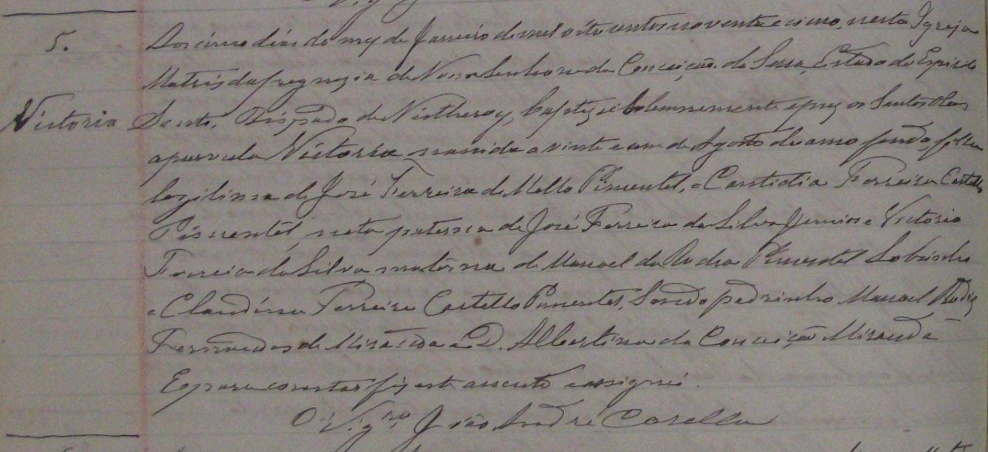 5.
Aos cinco dias do mez de Janeiro de mil oito centos noventa e cinco, nesta Igreja
Matriz da freguezia de Nossa Senhora da Conceição da Serra, Estado do Espirito
Victoria
Santo, Bispado de Nictheroy, baptizei solemnemente e puz os Santos Oleos
a parvula Victoria nascida a vinte e um de Agosto do anno findo filha
legitima de José Ferreira de Mello Pimentel, e Cantidia Ferreira Castello
Pimentel, neta paterna de José Ferreira da Silva Junior e Victoria
Ferreira da Silva materna de Manoel da Rocha Pimentel Sobrinho
e Claudina Ferreira Castello Pimentel, Sendo padrinho Manoel Rodiz
Fernandes de Miranda e D. Albertina da Conceição Miranda
E para constar fiz est assento e assignei.
O Vigro João André Casella